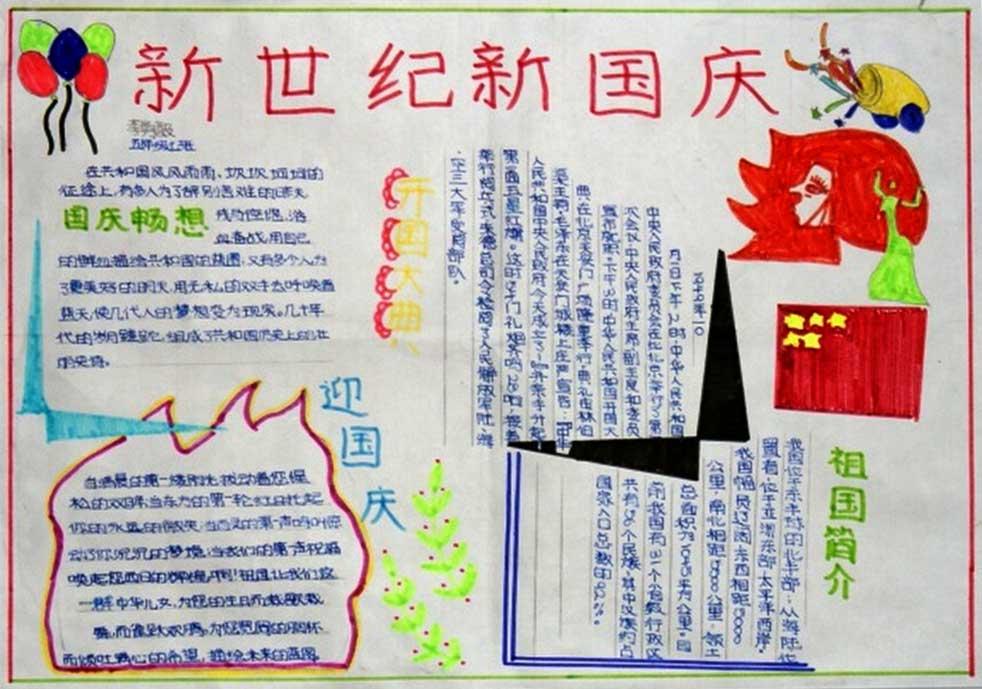 新世纪新国庆
五年级1班
在共和国风风雨雨、坎坎坷坷的
征途上,有多人为了
国庆畅想
血奋战,用自己
的鲜血描绘共和国的蓝图,又有多个人为
了更美好的明天,用无私的双手去呼唤着
蓝天,使几代人的梦想变为现实。几十年
代的岁月,组成了共和国历史上的壮
丽史诗。
开国大典
1949年10
月1日下午2时,中华人民共和国
中央人民政府委员会在北京举行了第一
次会议,中央人民政府主席、副主席和委员
宣布就职。下午3时,中华人民共和国开国大
典,在北京天安门广场隆重举行,典礼由林伯
渠主持,毛泽东在天安门城楼上庄严宣告:“中华
人民共和国中央人民政府今天成立了!”并亲手升起
第一面五星红旗。这时54门礼炮齐鸣28响,接着
举行阅兵式,朱德总司令检阅了人民解放军陆、海
、空三大军受阅部队。
迎国庆
当清晨的第一缕阳光,拨动着您惺
松的双眼;当东方的第一轮红日托起
你的永恒的微笑;当
动了你沉沉的梦境;当我们的第一声祝福
唤起您昨日的辉煌,啊!祖国,让我们这
一群中华儿女,为您的生日而载歌载
舞,而雀跃欢腾,为您
而倾吐满心的希望,描绘未来的蓝图。
祖国简介
我国位于东半球的北半部;从海陆位
置看,位于亚洲东部,太平洋西岸。
我国幅员辽阔,东西相距5000
公里,南北相距5500公里,领土
总面积为1045万平方公里。目
前,我国有31个省级行政区
共有56个民族,其中汉族约占
国家人口总数的92%。